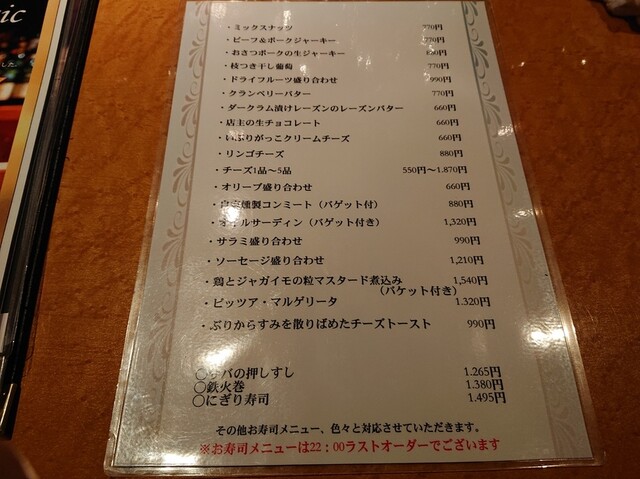 ic
した。
・ミックスナッツ 770円
・ビーフ&ポークジャーキー 770円
・おさつポークの生ジャーキー
・枝つき干し葡萄 770円
・ドライフルーツ盛り合わせ 990円
・クランベリーバター 770円
・ダークラム漬けレーズンのレーズンバター 660円
・店主の生チョコレート 660円
・いぶりがっこクリームチーズ 660円
・リンゴチーズ 880円
・チーズ1品〜5品 550円〜1.870円
・オリーブ盛り合わせ 660円
・自家燻製コンミート(バゲット付) 880円
・オイルサーディン(バゲット付き) 1,320円
・サラミ盛り合わせ 990円
・ソーセージ盛り合わせ 1,210円
・鶏とジャガイモの粒マスタード煮込み 1,540円
(バケット付き)
・ピッツア・マルゲリータ 1.320円
・ぶりからすみを散りばめたチーズトースト 990円
○サバの押しすし 1.265円
○鉄火巻 1.380円
○にぎり寿司 1.495円
その他お寿司メニュー、色々と対応させていただきます。
※お寿司メニューは22:00ラストオーダーでございます